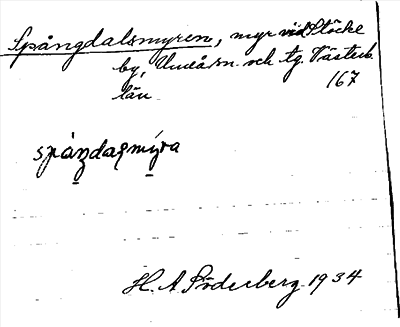 Spångdalsmyren, myr vid Stöcke
by, Umeå sn. och tg. Västerb.
län 167
spåṉdaꞎmy̱ra
H. A. Söderberg 1934